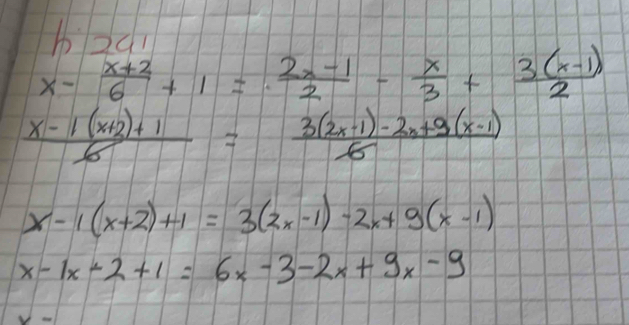 h 241
x - (x+2)/6 + 1 = (2x-1)/2 - x/3 + 3(x-1)/2
(x-1(x+2)+1)/6 = (3(2x-1)-2x+9(x-1))/6
x-1(x+2)+1 = 3(2x-1)-2x+9(x-1)
x-1x-2+1 = 6x-3-2x+9x-9
x-